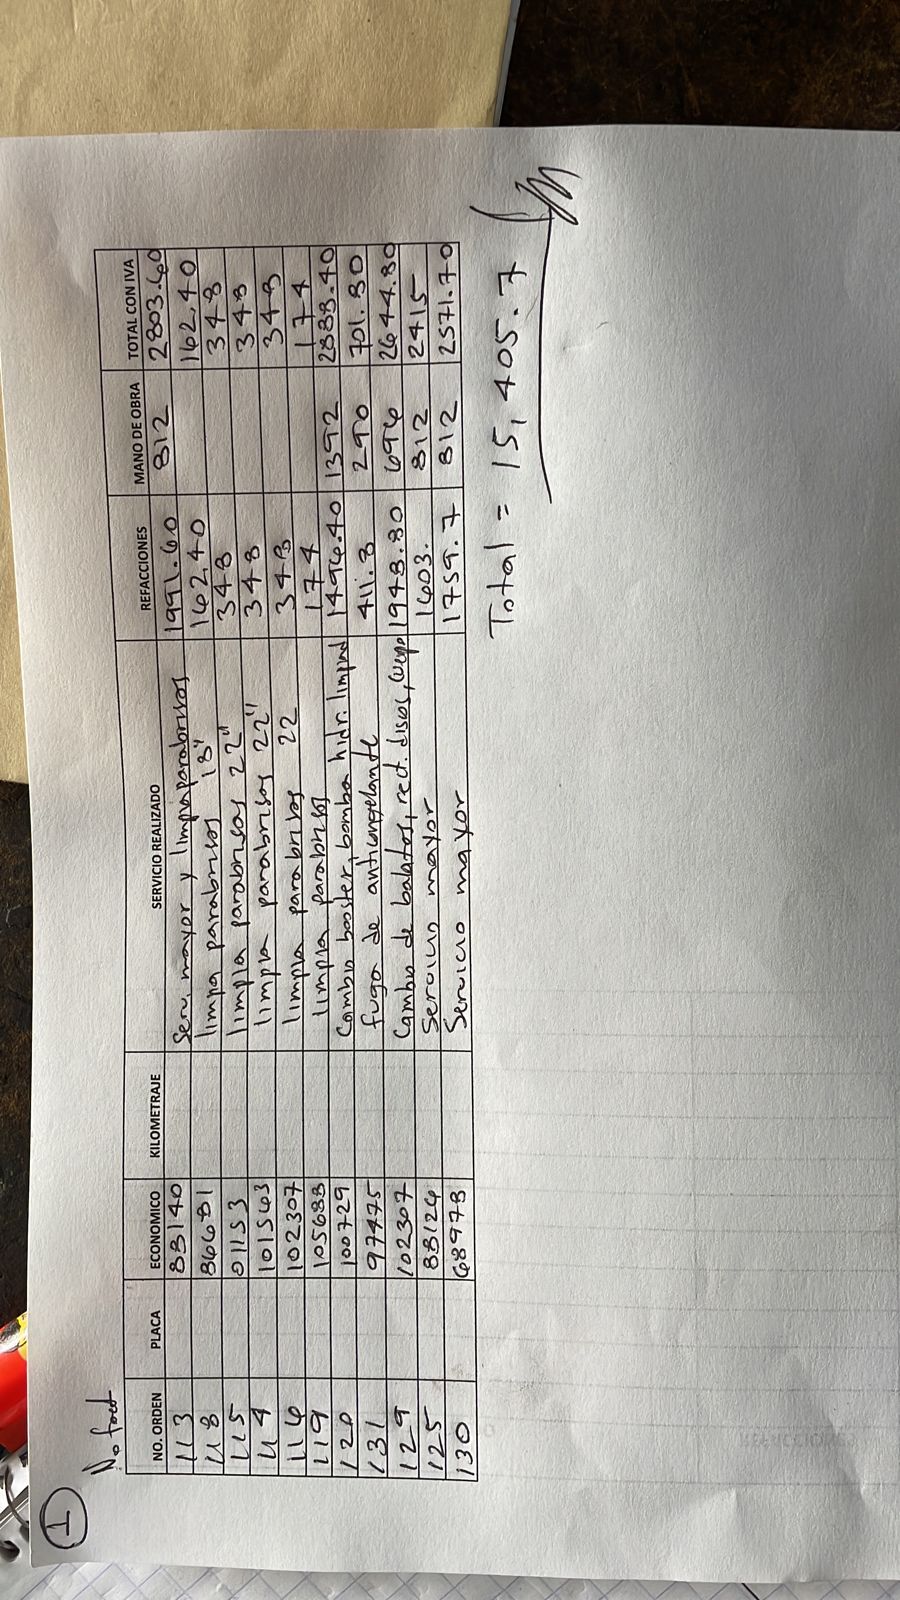 1
No fact
NO. ORDEN PLACA ECONOMICO KILOMETRAJE SERVICIO REALIZADO REFACCIONES MANO DE OBRA TOTAL CON IVA
113 88140 Serv. mayor y limpiaparabrisas 1991.60 812 2803.60
118 86681 limpa parabrisas 18" 162.40 162.40
115 01153 limpia parabrisas 22" 348 348
114 101563 limpia parabrisas 22" 348 348
116 102307 limpia parabrisas 22 348 348
119 105688 limpia parabrisas 174 174
120 100729 Cambio booster, bomba hidr. limpiad 1496.40 1392 2888.40
131 97475 fuga de anticongelante 411.8 290 701.80
129 102307 Cambio de balatas, rect. discos, 1948.80 696 2644.80
125 88126 Servicio mayor 1603. 812 2415
130 68978 Servicio mayor 1759.7 812 2571.70
Total = 15,405.7